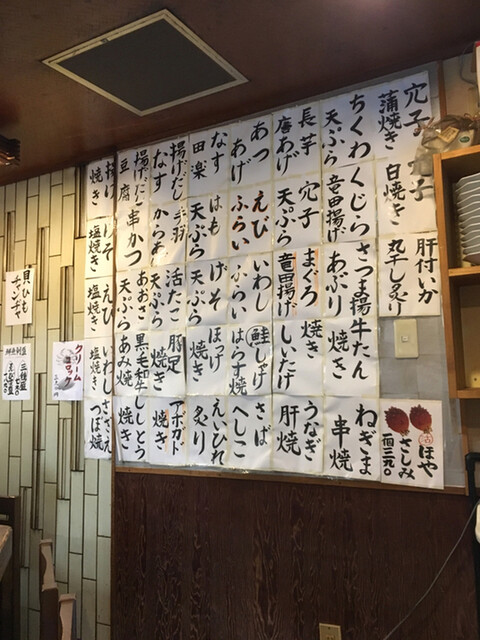 穴子
蒲焼き
白焼き
肝付いか
丸干し炙り
ほや
さしみ
一個三九〇
ちくわ
天ぷら
くじら
竜田揚げ
さつま揚
あぶり
牛たん
焼き
ねぎま
串焼
長芋
唐あげ
穴子
天ぷら
まぐろ
竜田揚げ
焼き
しいたけ
うなぎ
肝焼
あつ
あげ
えび
ふらい
いわし
ふらい
鮭しゃけ
はらす焼
さば
へしこ
なす
田楽
はも
天ぷら
げそ
焼き
ほっけ
えいひれ
炙り
揚げだし
なす
手羽
からあげ
活たこ
天ぷら
豚足
焼き
アボガド
焼き
揚げだし
豆腐
串かつ
あおさ
天ぷら
黒毛和牛
あみ焼き
ししとう
焼き
焼き
塩焼き
えび
塩焼き
いわし
塩焼き
さざえ
つぼ焼
クリーム
コロッケ
貝ひも
三種盛